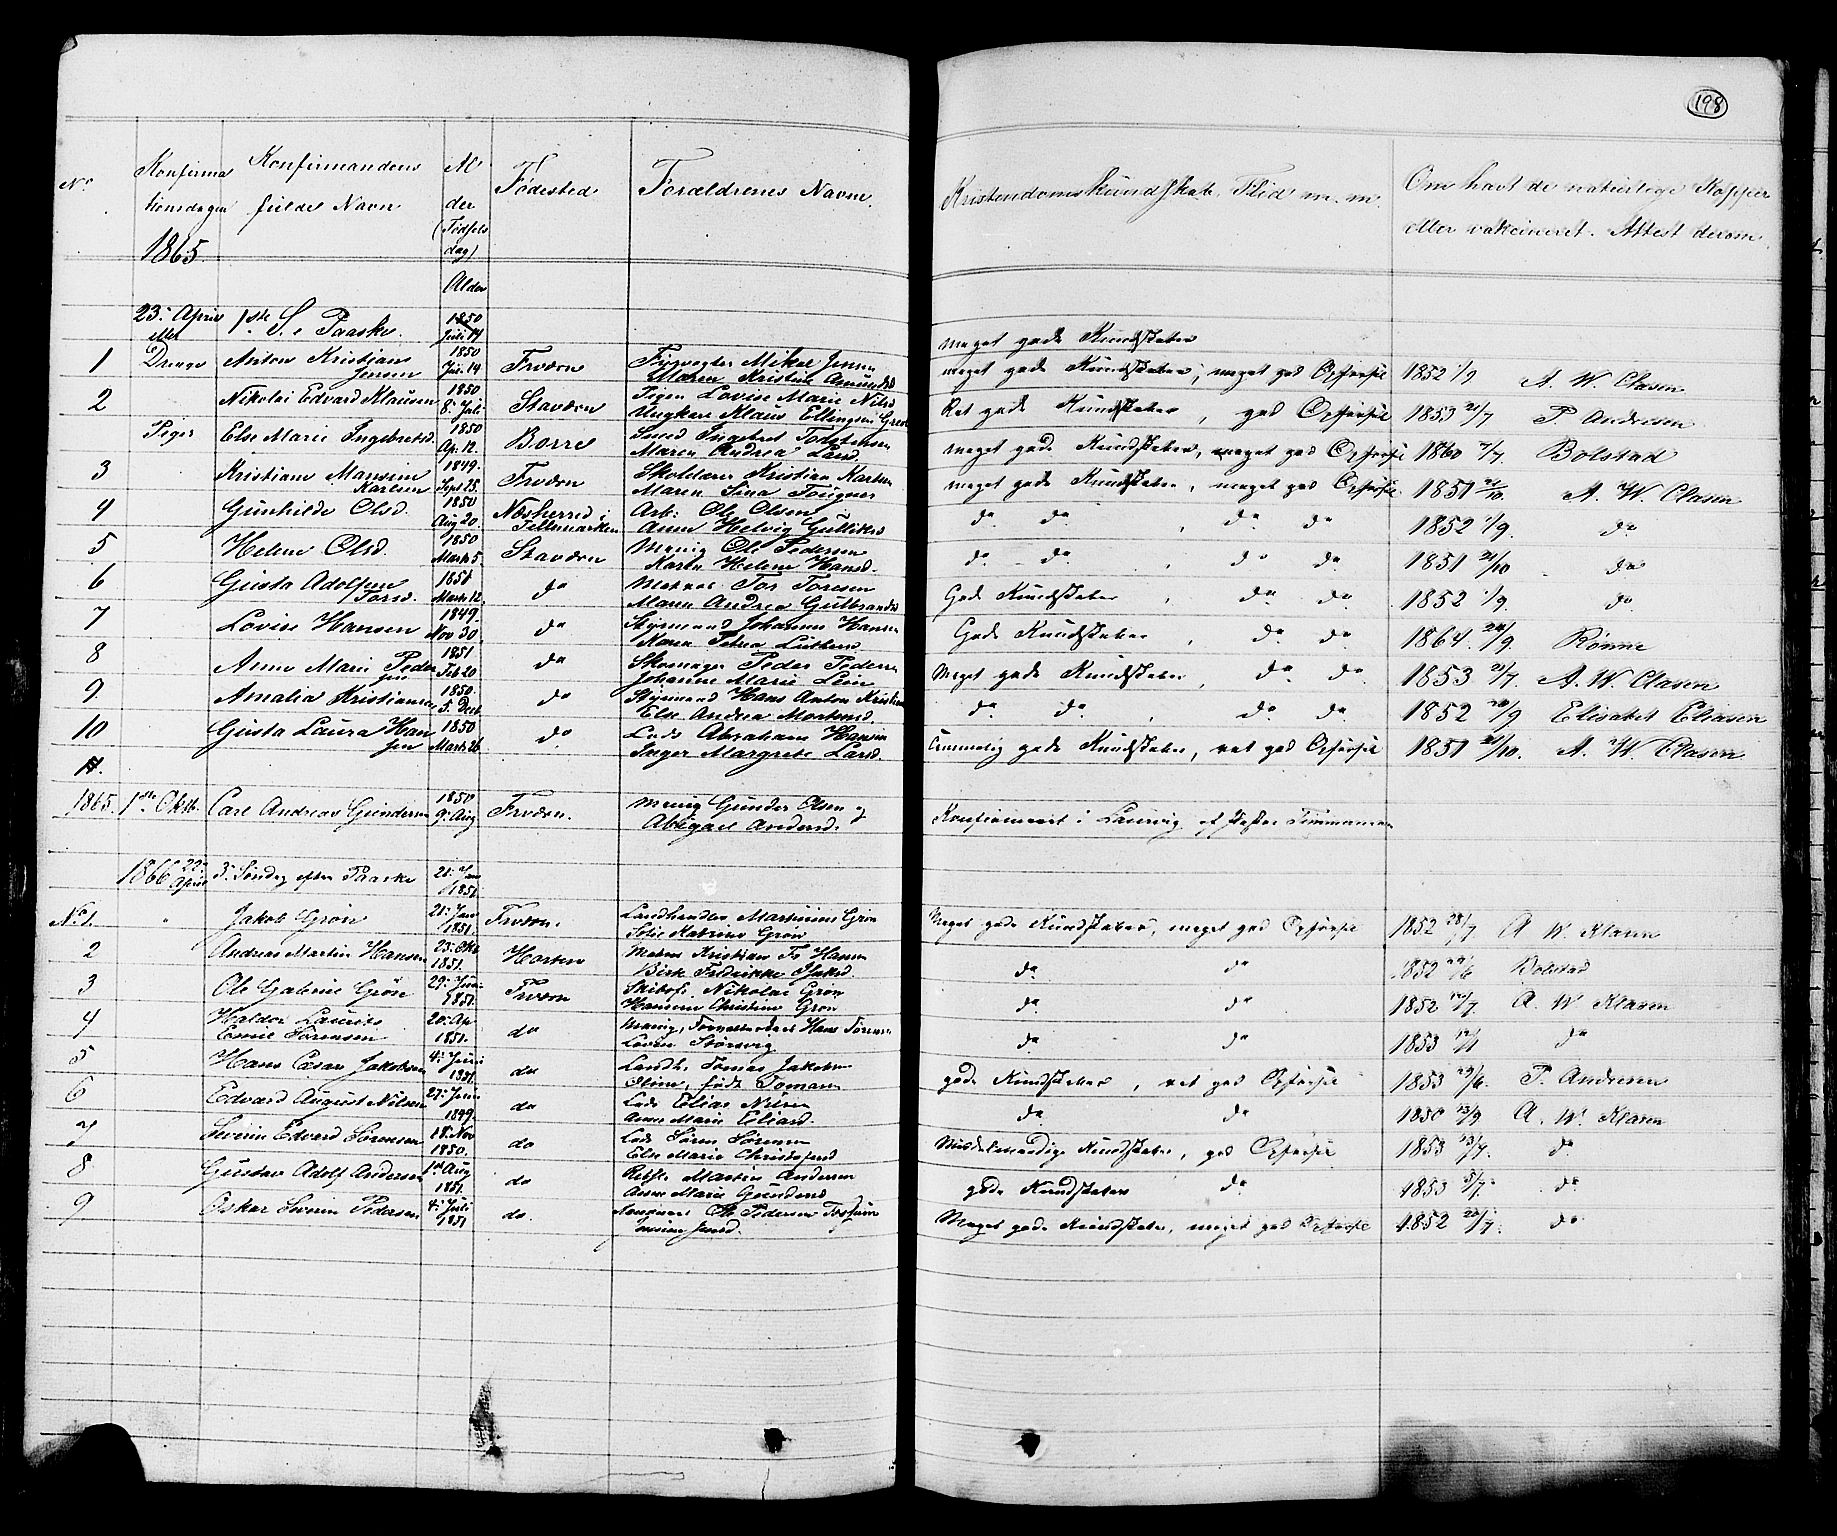 198
No
Konfirma
tionsdagen
1865.
Konfirmandens
fulde Navn
Al
der
(Fødsels
dag)
Alder
Fødested
Forældrenes Navn.
Kristendomskundskab, Flid m. m.
Om havt de naturlige Kopper
eller vakcineret. Attest derom.
23. April 1ste S. e Paaske. 1850 Juli 14
meget gode Kundskaber
1 Drenge Anton Kristian Jensen 1850 14 Fredvørn Mikel Jensen Maren Kristine meget gode Kundskaber, meget god Opførsel 1852 1/9 A. W. Clasen
2 Nikolai Edvard Klausen 1850 8. Juli Staværn Pigen Lovise Marie Nilsd Ungkarl Klaus Ellingsen Ret gode Kundskaber, god Opførsel 1853 21/7 P. Andresen
Piger Else Marie Ingebretsd. 1850 Ap. 12. Borre Smed Ingebret Torstensen Maren Andrea Larsd. meget gode Kundskaber, meget god Opførsel 1860 /7. Bolstad
3 Kristiane Karlsen 1849. Sept 25. Skolelærer Kristian Maren Sina meget gode Kundskaber, meget god Opførsel. 1851 21/10. A. W. Clasen
4 Gunhilde Olsd. 1850 Aug 20. i Tellemarken Arb. Ole Olsen Anne Helvig Gulliksd do do, do do 1852 1/9. do
5 Helene Olsd. 1850 Marts 5. Staværn Menig Ole Pedersen Karen Helene Hansd. do do, do do 1851 21/10 do
6 Gusta Adolfine Torsd. 1851 Marts 12. do Matros Tor Toresen Maren Andrea Gulbrandsd Gode Kundskaber, do do 1852 1/9. do
7 Lovise Hansen 1849. Nov 30. do Styrmand Johannes Hansen Petrea Gode Kundskaber, do do 1864. 24/9. Rønne
8 Anne Marie Pedersen 1851 Feb 20 do Skomager Peder Pedersen Johanne Marie Meget gode Kundskaber, do do 1853 21/7. A. W. Clasen
9 Amalia Kristiansen 1850. 5. Dec do Styrmand Hans Anton Kristian Else Andrea Mortensd. do do, do do 1852 20/9 Elisabet Eliasen
10 Gusta Laura Hansen 1850 Marts 26. do Lods Abraham Hansen Inger Margrete Larsd. Temmelig gode Kundskaber, ret god Opførsel 1851 21/10. A. W. Clasen
11.
1865. 1ste Oktb. Carl Andreas Gundersen 1850 9. Aug Menig Gunder Olsen og Abigael Andersd. Konfirmeret i Laurvig af Timmaman
1866 22. April 3. Søndag efter Paaske 21. Jan 1851.
No 1. " Jakob Grøn 21. Jan 1851. Landhandler Martinius Grøn Katrine Grøn Meget gode Kundskaber, meget god Opførsel 1852 28/7 A W. Klasen
2 Andreas Martin Hansen 23. Okt 1851. Horten Matros Kristian Hansen Fredrikke do do 1852 /6 Bolstad
3 Ole Gabriel Grøn 29. Juni 1851. Skibsf. Nikolai Grøn Christine Grøn do do 1852 /7 A. W. Klasen
4 Haldor Laurits Sørensen 20. Ap. 1851. do Menig, Hans do do 1853 do
5 Hans Cæsar Jakobsen 4. Juni 1851. do Landh. Tomas Jakobsen Oline, født Tomasen gode Kundskaber, ret god Opførsel 1853 29/6. P. Andresen
6 Edvard August Nilsen 27. Juni 1849. do Lods Elias Nilsen Anne Marie Eliasd. do do 1850 13/9 A. W. Klasen
7 Severin Edvard Sørensen 18. Nov 1850. do Lods Søren Sørensen Else Marie Christofersd Middelmaadige Kundskaber, god Opførsel 1853 /7. do
8 Gustav Adolf Andersen 1st Aug 1851. do Martin Andersen Anne Marie Gundersd gode Kundskaber do 1853 5/7. do
9 Oskar Severin Pedersen 4. Juli 1851 do. Ole Pedersen Jensd. Meget gode Kundskaber, meget god Opførsel 1852 20/7. do